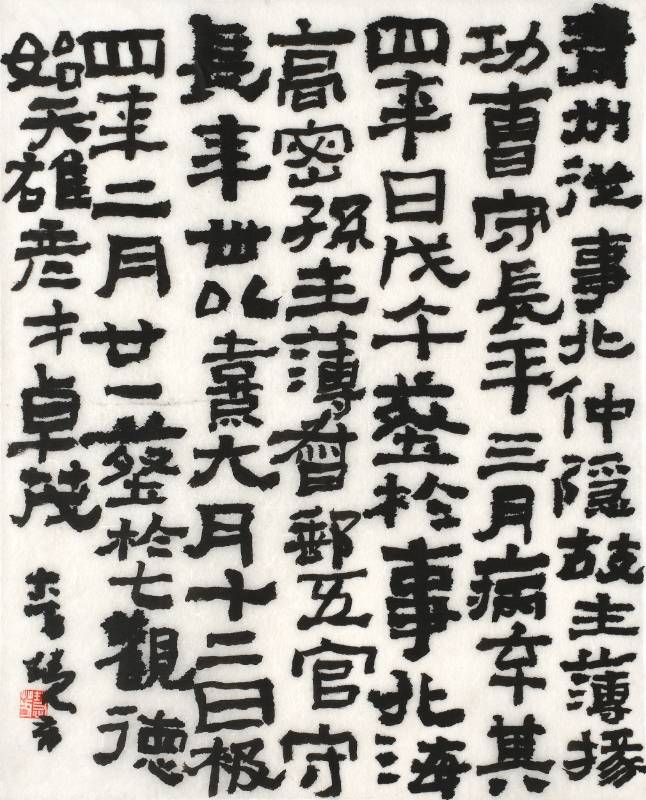 青州從事北仲隱故主薄掾
功曹守長年三月病卒其
四年日戊午葬於事北海
高密孫主薄督郵五官守
長年卅以熹六月十二日
四年二月廿一葬於七觀德
始天雄彦才卓茂